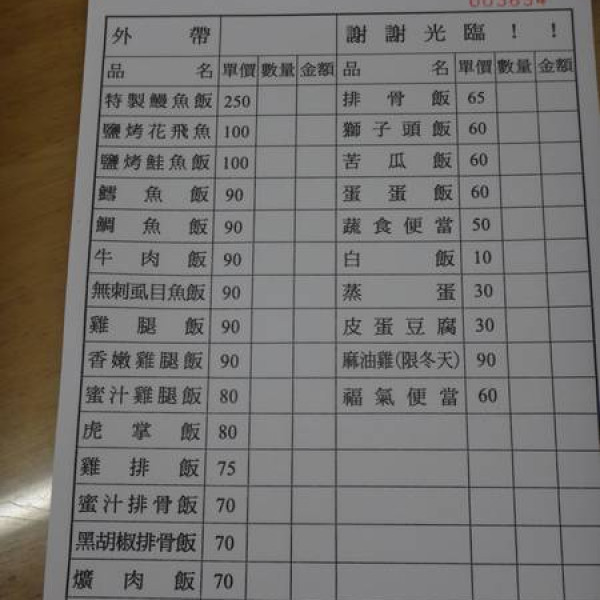 外帶 謝謝光臨！！
品名 單價 數量 金額 品名 單價 數量 金額
特製鰻魚飯 250 排骨飯 65
鹽烤花飛魚 100 獅子頭飯 60
鹽烤鮭魚飯 100 苦瓜飯 60
鱈魚飯 90 蛋蛋飯 60
鯛魚飯 90 蔬食便當 50
牛肉飯 90 白飯 10
無刺虱目魚飯 90 蒸蛋 30
雞腿飯 90 皮蛋豆腐 30
香嫩雞腿飯 90 麻油雞(限冬天) 90
蜜汁雞腿飯 80 福氣便當 60
虎掌飯 80
雞排飯 75
蜜汁排骨飯 70
黑胡椒排骨飯 70
爌肉飯 70